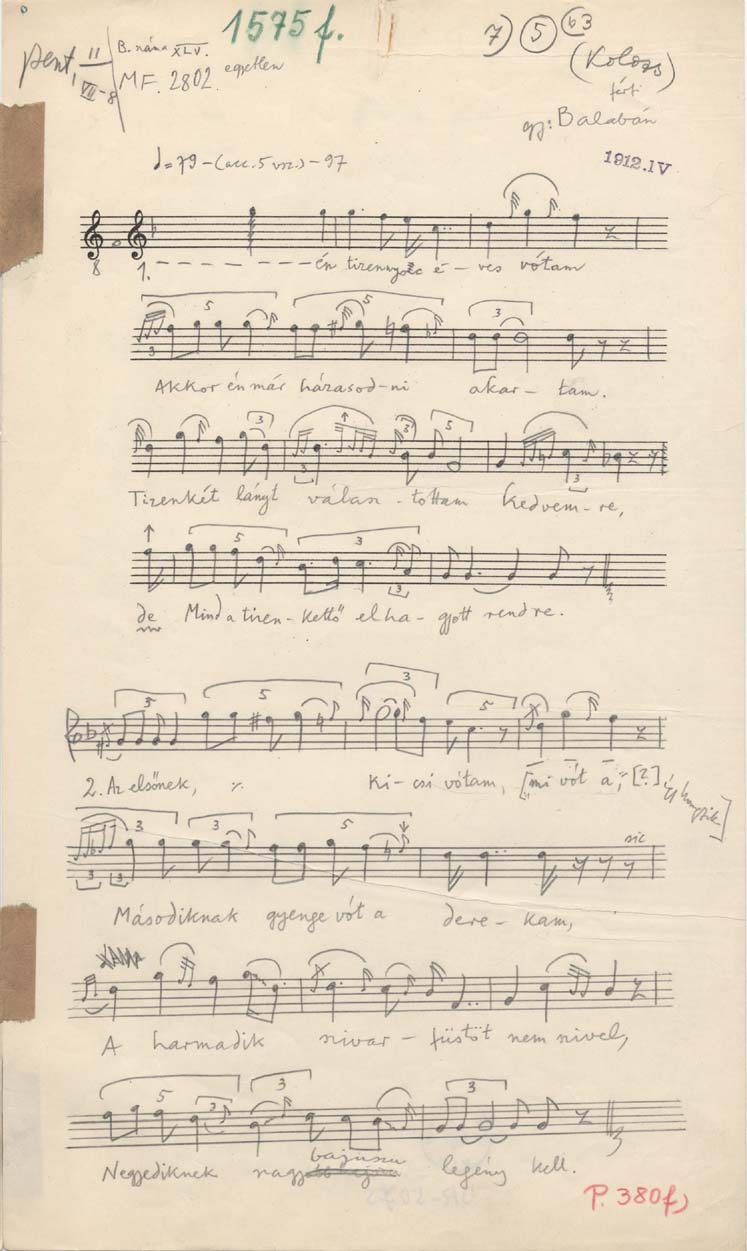 1575f.
7) 5 63
pent, II VII-8
B. náma XLV.
MF. 2802. egyetlen
(Kolozs)
férfi
gy: Balabán
1912.IV
♩=79-(acc. 5 vsz.)-97
8
1. – – – – – – én tizennyolc é – ves vótam
5 5 3
3
Akkor én már házasod-ni akar – tam.
3 3 5
3 3
Tizenkét lányt válasz – tottam kedvem-re,
5 3
3
de Mind a tizen-kettő elha- gyott rendre.
3 5 3 5
2. Az elsőnek, ٪ Ki – csi vótam, [mi vót a; [?]
3 3 5 sic
3 3
Másodiknak gyenge vót a dere – kam,
A harmadik szivar – füstöt nem szivel,
5 3 3 3
bajúszu
Negyediknek nagy legény kell.
P. 380f)